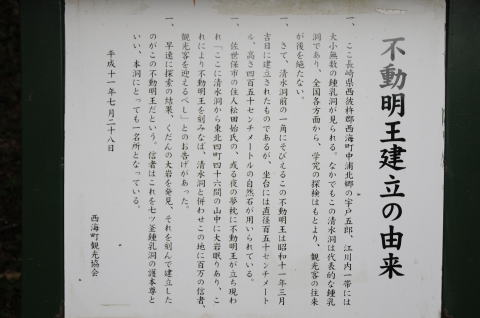 不動明王建立の由来
一、ここ長崎県西彼杵郡西海町中浦北郷の字戸五郎、江川内一帯には
大小無数の鍾乳洞が見られる。なかでもこの清水洞は代表的な鍾乳
洞であり、全国各方面から、学究の探検はもとより、観光客の往来
が後を絶たない。
一、さて、清水洞前の一角にそびえるこの不動明王は昭和十一年三月
吉日に建立されたものであるが、坐台には直径百五十センチメート
ル、高さ四百五十センチメートルの自然石が用いられている。
一、佐世保市の住人松田始氏の、或る夜の夢枕に不動明王が立ち現わ
れ「ここに清水洞から東北四町四十六間の山中に大岩眠りあり、こ
れにより不動明王を刻みなば、清水洞と併わせこの地に百万の信者、
観光客を迎えるべし」とのお告げがあった。
一、早速に探索の結果、くだんの大岩を発見、それを刻んで建立した
のがこの不動明王だという。信者はこれを七ツ釜鍾乳洞の護本尊と
いい、本洞にとっても一名所となっている。
平成十一年七月二十八日
西海町観光協会